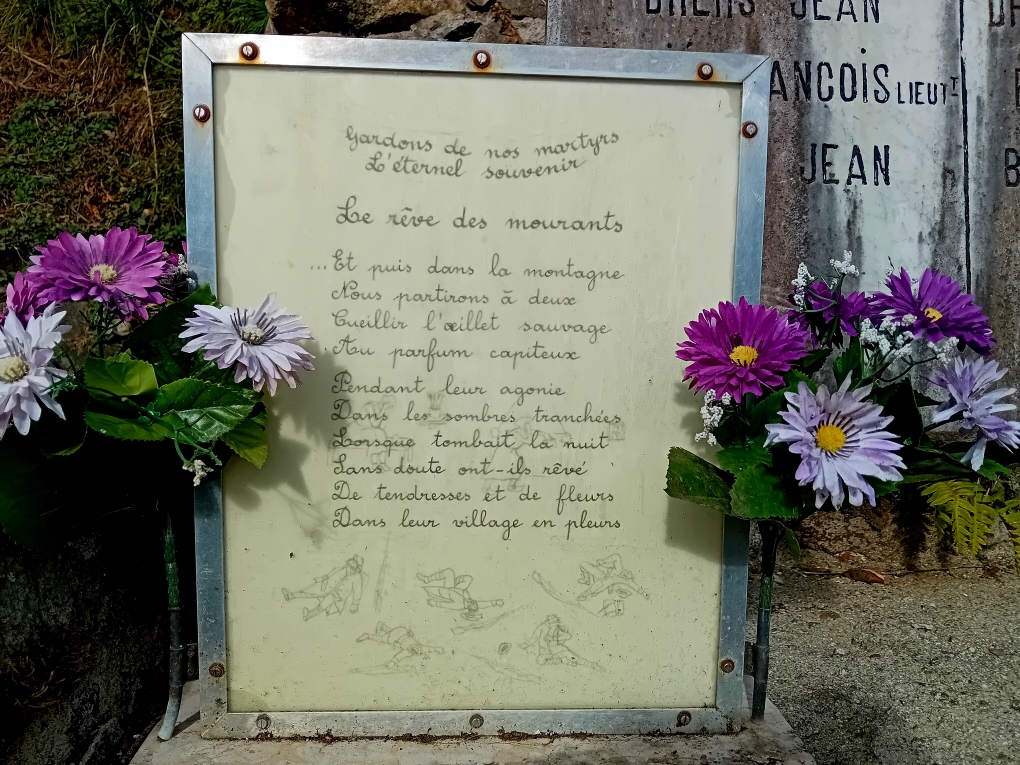 Gardons de nos martyrs
L'éternel souvenir
Le rêve des mourants
...Et puis dans la montagne
Nous partirons à deux
Cueillir l'œillet sauvage
Au parfum capiteux
Pendant leur agonie
Dans les sombres tranchées
Lorsque tombait la nuit
Sans doute ont-ils rêvé
De tendresses et de fleurs
Dans leur village en pleurs
JEAN
ANCOIS LIEUT T
JEAN